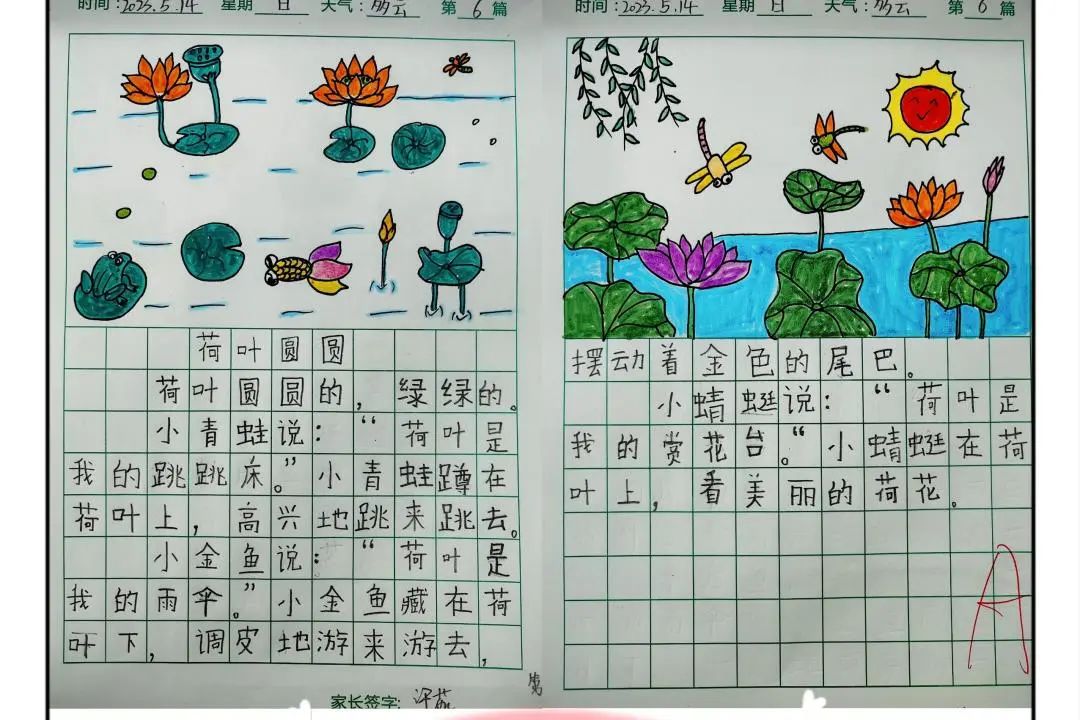 时间:2023.5.14 星期 日 天气:多云 第 6 篇
荷叶圆圆
荷叶圆圆的，绿绿的。
小青蛙说：“荷叶是
我的跳跳床。”小青蛙蹲在
荷叶上，高兴地跳来跳去。
小金鱼说：“荷叶是
我的雨伞。”小金鱼藏在荷
叶下，调皮地游来游去，
家长签字:
时间:2023.5.14 星期 日 天气:多云 第 6 篇
摆动着金色的尾巴。
小蜻蜓说：“荷叶是
我的赏花台。“小蜻蜓在荷
叶上，看美丽的荷花。
A